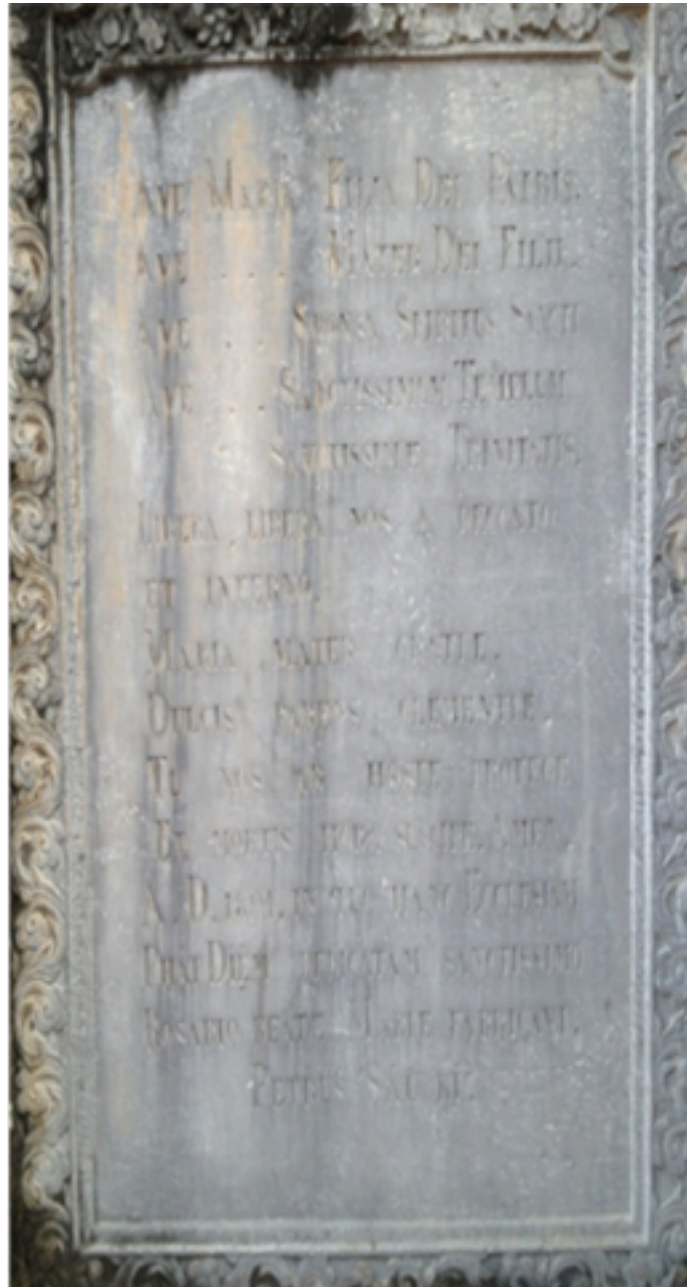 AVE MARIA FILIA DEI PATRIS.
AVE . . . MATER DEI FILII.
AVE . . . SPONSA SPIRITUS
AVE . . . SANCTISSIMUM TEMPLUM
TRINITATIS.
LIBERA, LIBERA NOS A PECCATO
ET INFERNO.
MARIA MATER GRATIÆ.
DULCIS PARENS CLEMENTIÆ.
TU NOS AB HOSTE PROTEGE
ET MORTIS HORA SUSCIPE. AMEN.
A. D. HANC ECCLESIAM
DICATAM SANCTISSIMO
ROSARIO BEATÆ MARIÆ FABRICAVI.
PETRUS